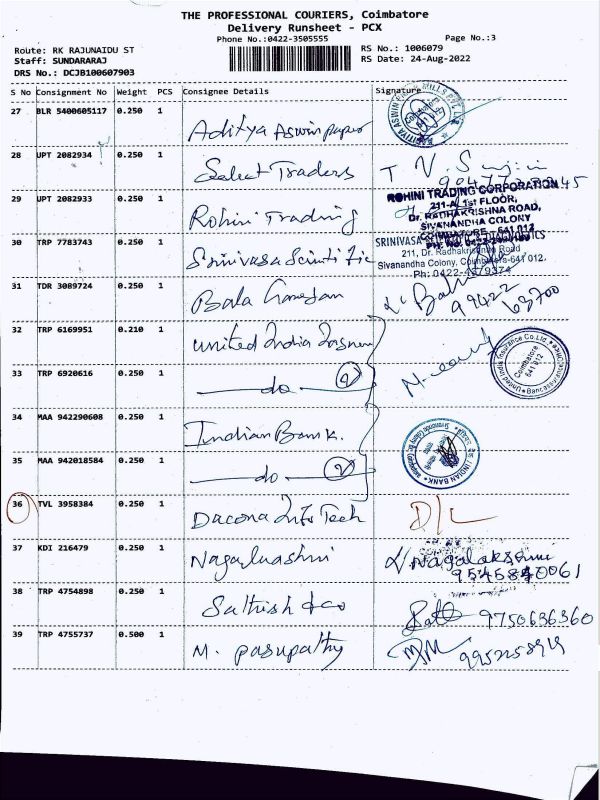 THE PROFESSIONAL COURIERS, Coimbatore
Delivery Runsheet - PCX
Phone No.:0422-3505555
Page No.:3
Route: RK RAJUNAIDU ST
RS No.: 1006079
Staff: SUNDARARAJ
RS Date: 24-Aug-2022
DRS No.: DCJB100607903
S No Consignment No Weight PCS Consignee Details Signature
27 BLR 5400605117 0.250 1 Aditya Aswin paper
28 UPT 2082934 0.250 1 Select Traders
29 UPT 2082933 0.250 1 Rohini Trading
ROHINI TRADING CORPORATION
211-A, 1st FLOOR,
Dr. RADHAKRISHNA ROAD,
SIVANANDHA COLONY
COIMBATORE - 641 012
30 TRP 7783743 0.250 1 Srinivasa Scientific
SRINIVASA
211, Dr. Radhakrishna Road
Sivanandha Colony, Coimbatore-641 012.
Ph: 0422-4379374
31 TDR 3089724 0.250 1 Bala Ganesan
99422 63700
32 TRP 6169951 0.210 1 United India
United India Insurance Co.Ltd.
Coimbatore
641 012
33 TRP 6920616 0.250 1 do 2
34 MAA 942290608 0.250 1 Indian Bank.
INDIAN BANK
35 MAA 942018584 0.250 1 do 2
36 TVL 3958384 0.250 1 Dacona Info Tech D/L
37 KDI 216479 0.250 1 Nagalakshmi Nagalakshmi
9545840061
38 TRP 4754898 0.250 1 Sathish & co 9750636360
39 TRP 4755737 0.500 1 M. Pasupathy